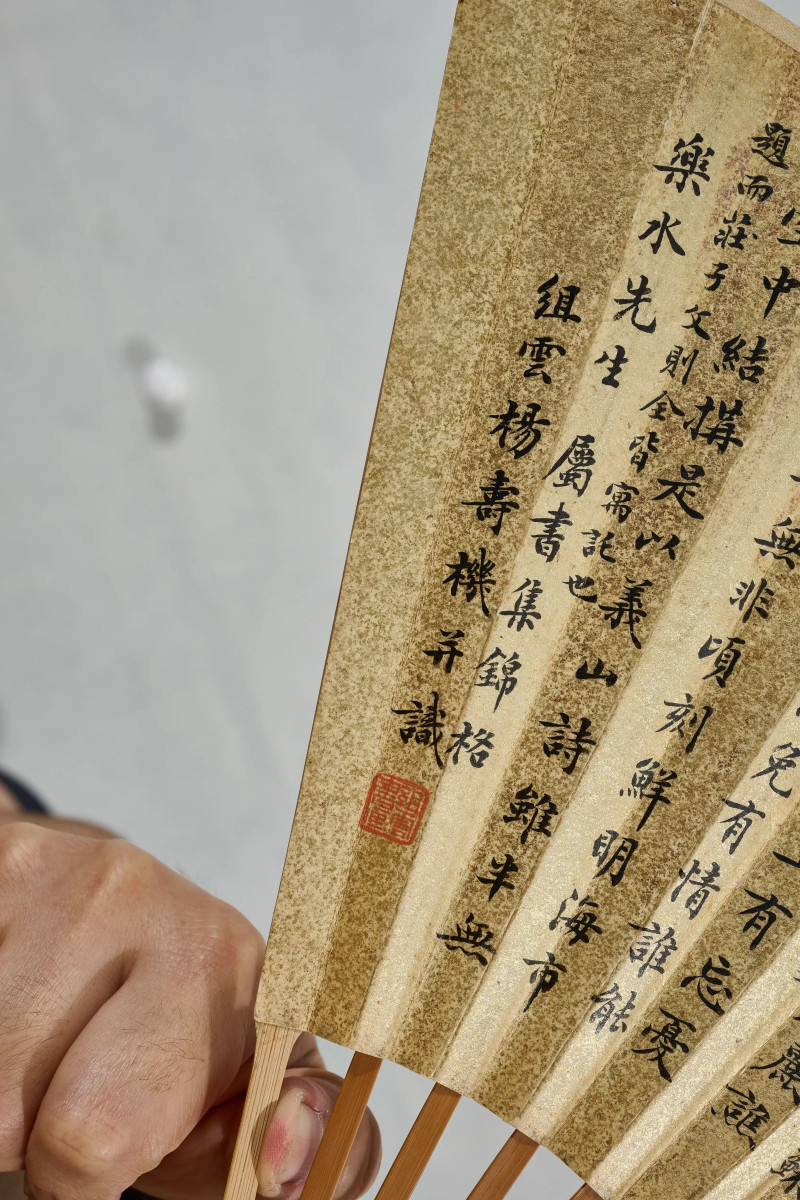 誰
有忘憂
免有情誰能
無非頃刻鮮明海市
生中結構是以義山詩雖半無
題而莊子文則全皆寓託也
樂水先生屬書集錦格
組雲楊壽機并識